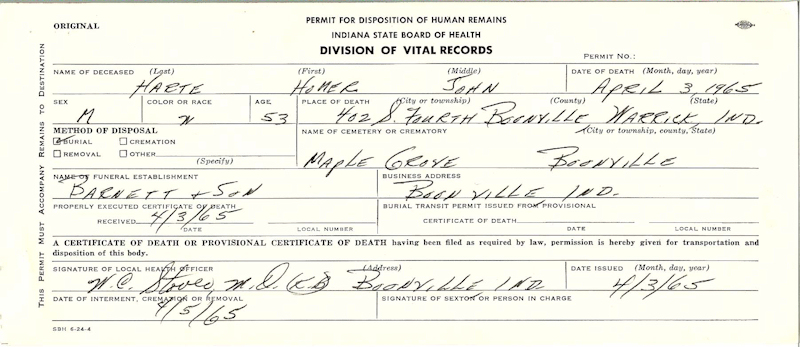 ORIGINAL
PERMIT FOR DISPOSITION OF HUMAN REMAINS
INDIANA STATE BOARD OF HEALTH
DIVISION OF VITAL RECORDS
PERMIT NO.:
THIS PERMIT MUST ACCOMPANY REMAINS TO DESTINATION
NAME OF DECEASED (Last) (First) (Middle) DATE OF DEATH (Month, day, year)
HARTE HOMER JOHN APRIL 3, 1965
SEX COLOR OR RACE AGE PLACE OF DEATH (City or township) (County) (State)
M W 53 402 S. FOURTH BOONVILLE WARRICK, IND.
METHOD OF DISPOSAL NAME OF CEMETERY OR CREMATORY (City or township, county, State)
BURIAL CREMATION
REMOVAL OTHER
(Specify)
MAPLE GROVE BOONVILLE
NAME OF FUNERAL ESTABLISHMENT BUSINESS ADDRESS
BARNETT & SON BOONVILLE IND.
PROPERLY EXECUTED CERTIFICATE OF DEATH BURIAL TRANSIT PERMIT ISSUED FROM PROVISIONAL
RECEIVED 4/3/65 CERTIFICATE OF DEATH
DATE LOCAL NUMBER DATE LOCAL NUMBER
A CERTIFICATE OF DEATH OR PROVISIONAL CERTIFICATE OF DEATH having been filed as required by law, permission is hereby given for transportation and
disposition of this body.
SIGNATURE OF LOCAL HEALTH OFFICER (Address) DATE ISSUED (Month, day, year)
W.C. Stover, M.D. BOONVILLE IND. 4/3/65
DATE OF INTERMENT, CREMATION OR REMOVAL SIGNATURE OF SEXTON OR PERSON IN CHARGE
4/5/65
SBH 6-24-4